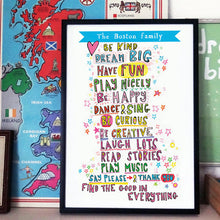 The Boston family
BE KIND
DREAM BIG
HAVE FUN
PLAY NICELY
BE HAPPY
DANCE & SING
BE CURIOUS
BE CREATIVE
LAUGH LOTS
READ STORIES
PLAY MUSIC
SAY PLEASE & THANK YOU
FIND THE GOOD IN
EVERYTHING
SCOTLAND
IRISH SEA
IRELAND
CARDIGAN BAY